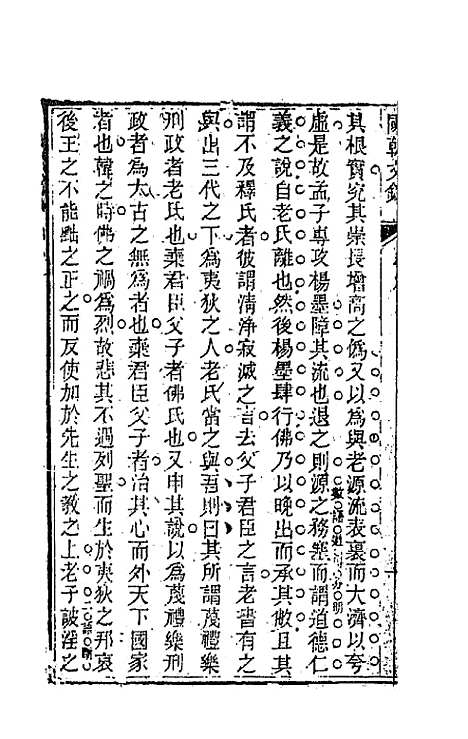 國朝文錄
其根實究其崇長增高之僞又以爲與老源流表裏而大濟以夸
虛是故孟子專攻楊墨障其流也退之則源之務塞而謂道德仁
義之說自老氏離也然後楊墨肆行佛乃以晚出而承其敝且其
謂不及釋氏者彼謂清淨寂滅之言去父子君臣之言老皆有之
與出三代之下爲夷狄之人老氏當之與吾則曰其所謂蔑禮樂
刑政者老氏也棄君臣父子者佛氏也又申其說以爲蔑禮樂刑
政者爲太古之無爲者也棄君臣父子者治其心而外天下國家
者也韓之時佛之禍爲烈故悲其不遇列聖而生於夷狄之邦哀
後王之不能黜之正之而反使加於先生之教之上老子詖淫之